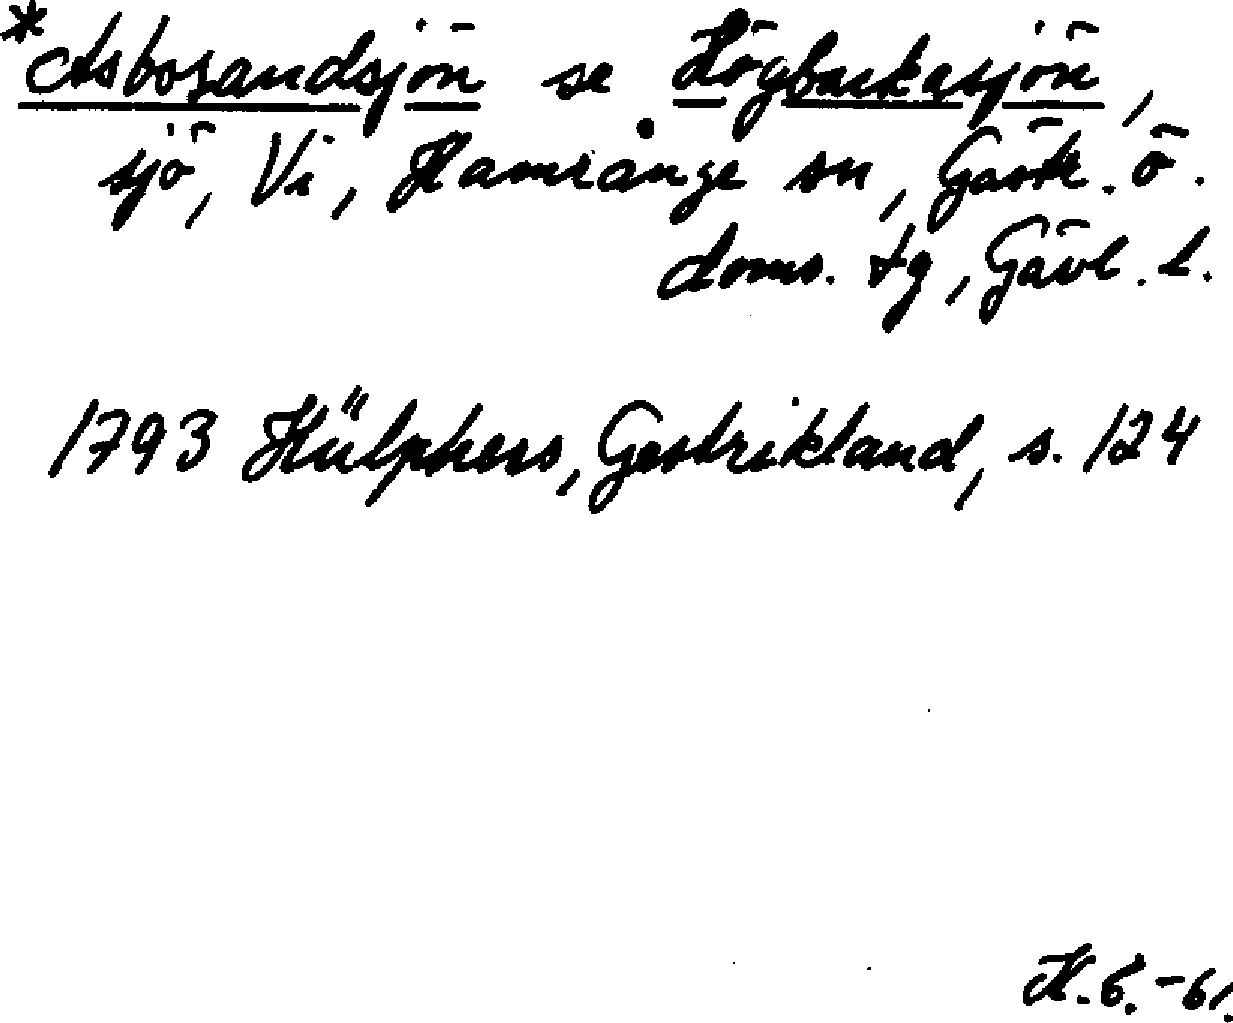 *Asbosandsjön se Högbackasjön,
sjö, Vi, Hamrånge sn, Gästr. ö.
doms. tg, Gävl. l.
1793 Hülphers, Gestrikland, s. 124
H.G.-61.